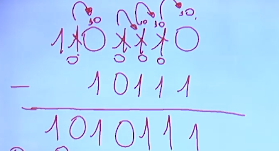 10 10 10 10
1101110
0 0 0 0
− 10111
1010111